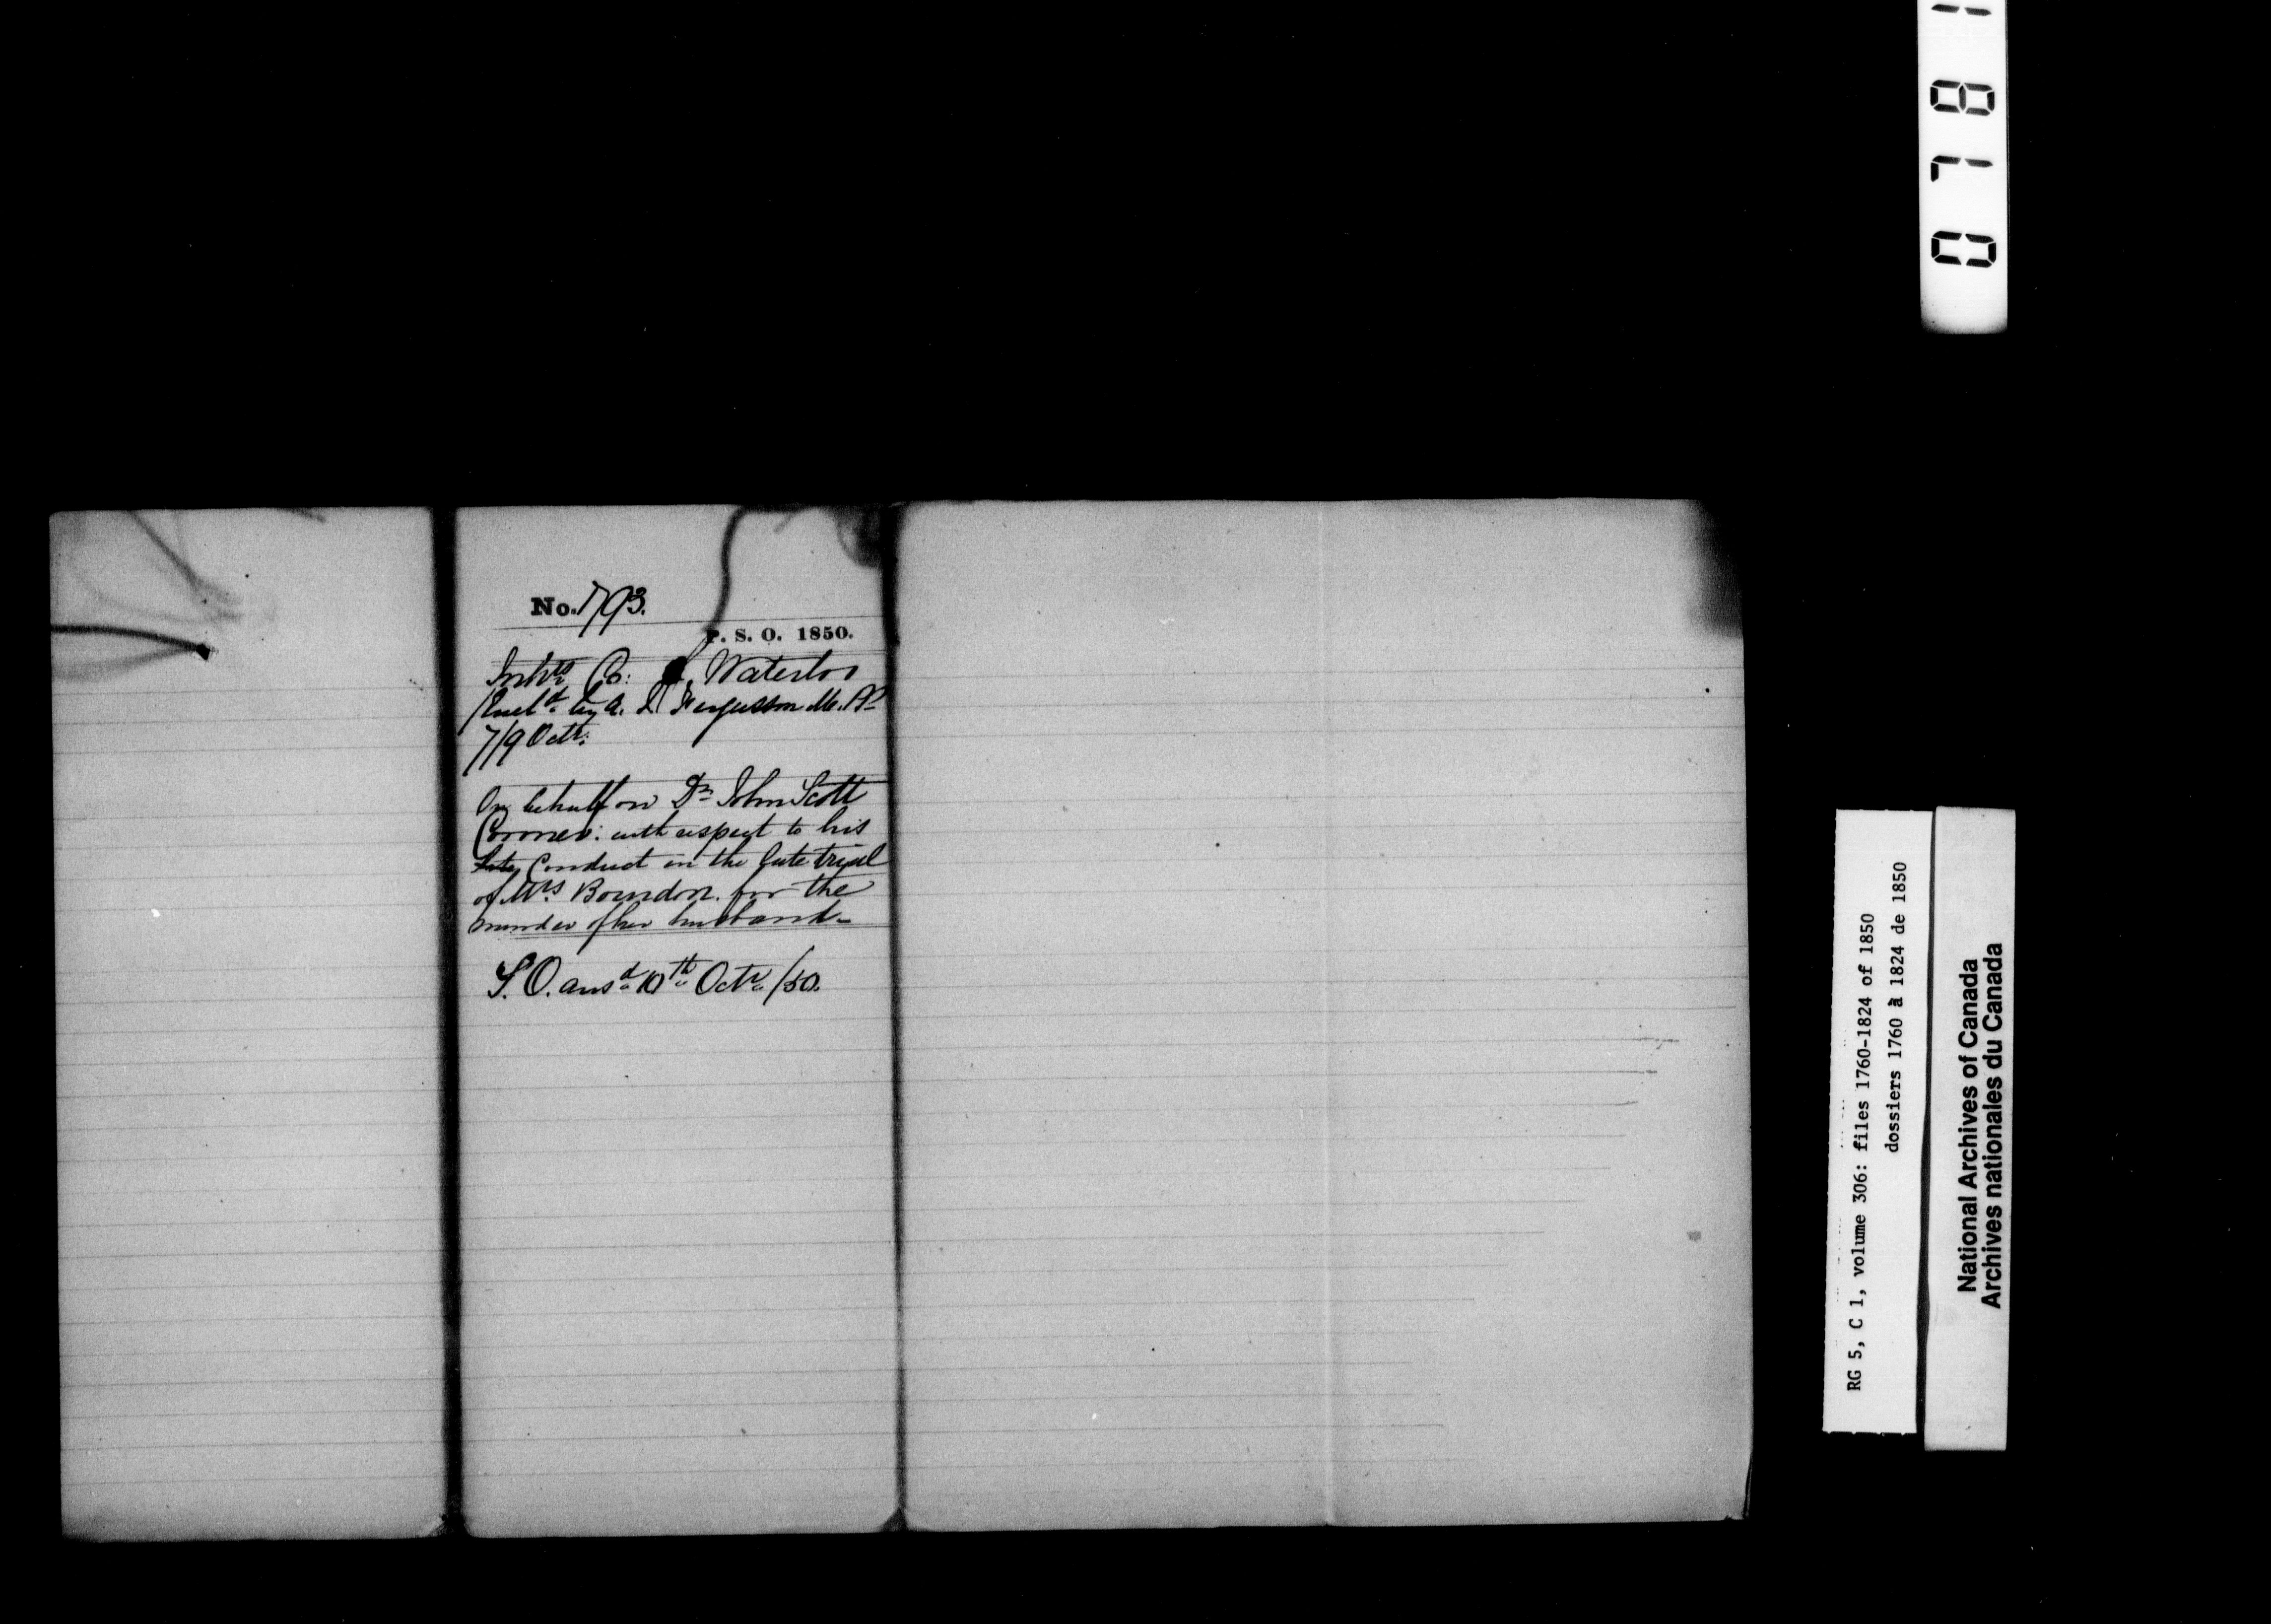 No. 1793.
P. S. O. 1850.
Inhts Co: of Waterloo
/Encld by A. D. Fergusson M. P.
7/9 Octr:
On behalf on Dr John Scott
Coroner: with respect to his
late Conduct in the late trial
of Mrs Boundon for the
murder of her husband.
S. O. ansd 10th Octr /50.
0781
RG 5, C 1, volume 306: files 1760-1824 of 1850
dossiers 1760 à 1824 de 1850
National Archives of Canada
Archives nationales du Canada